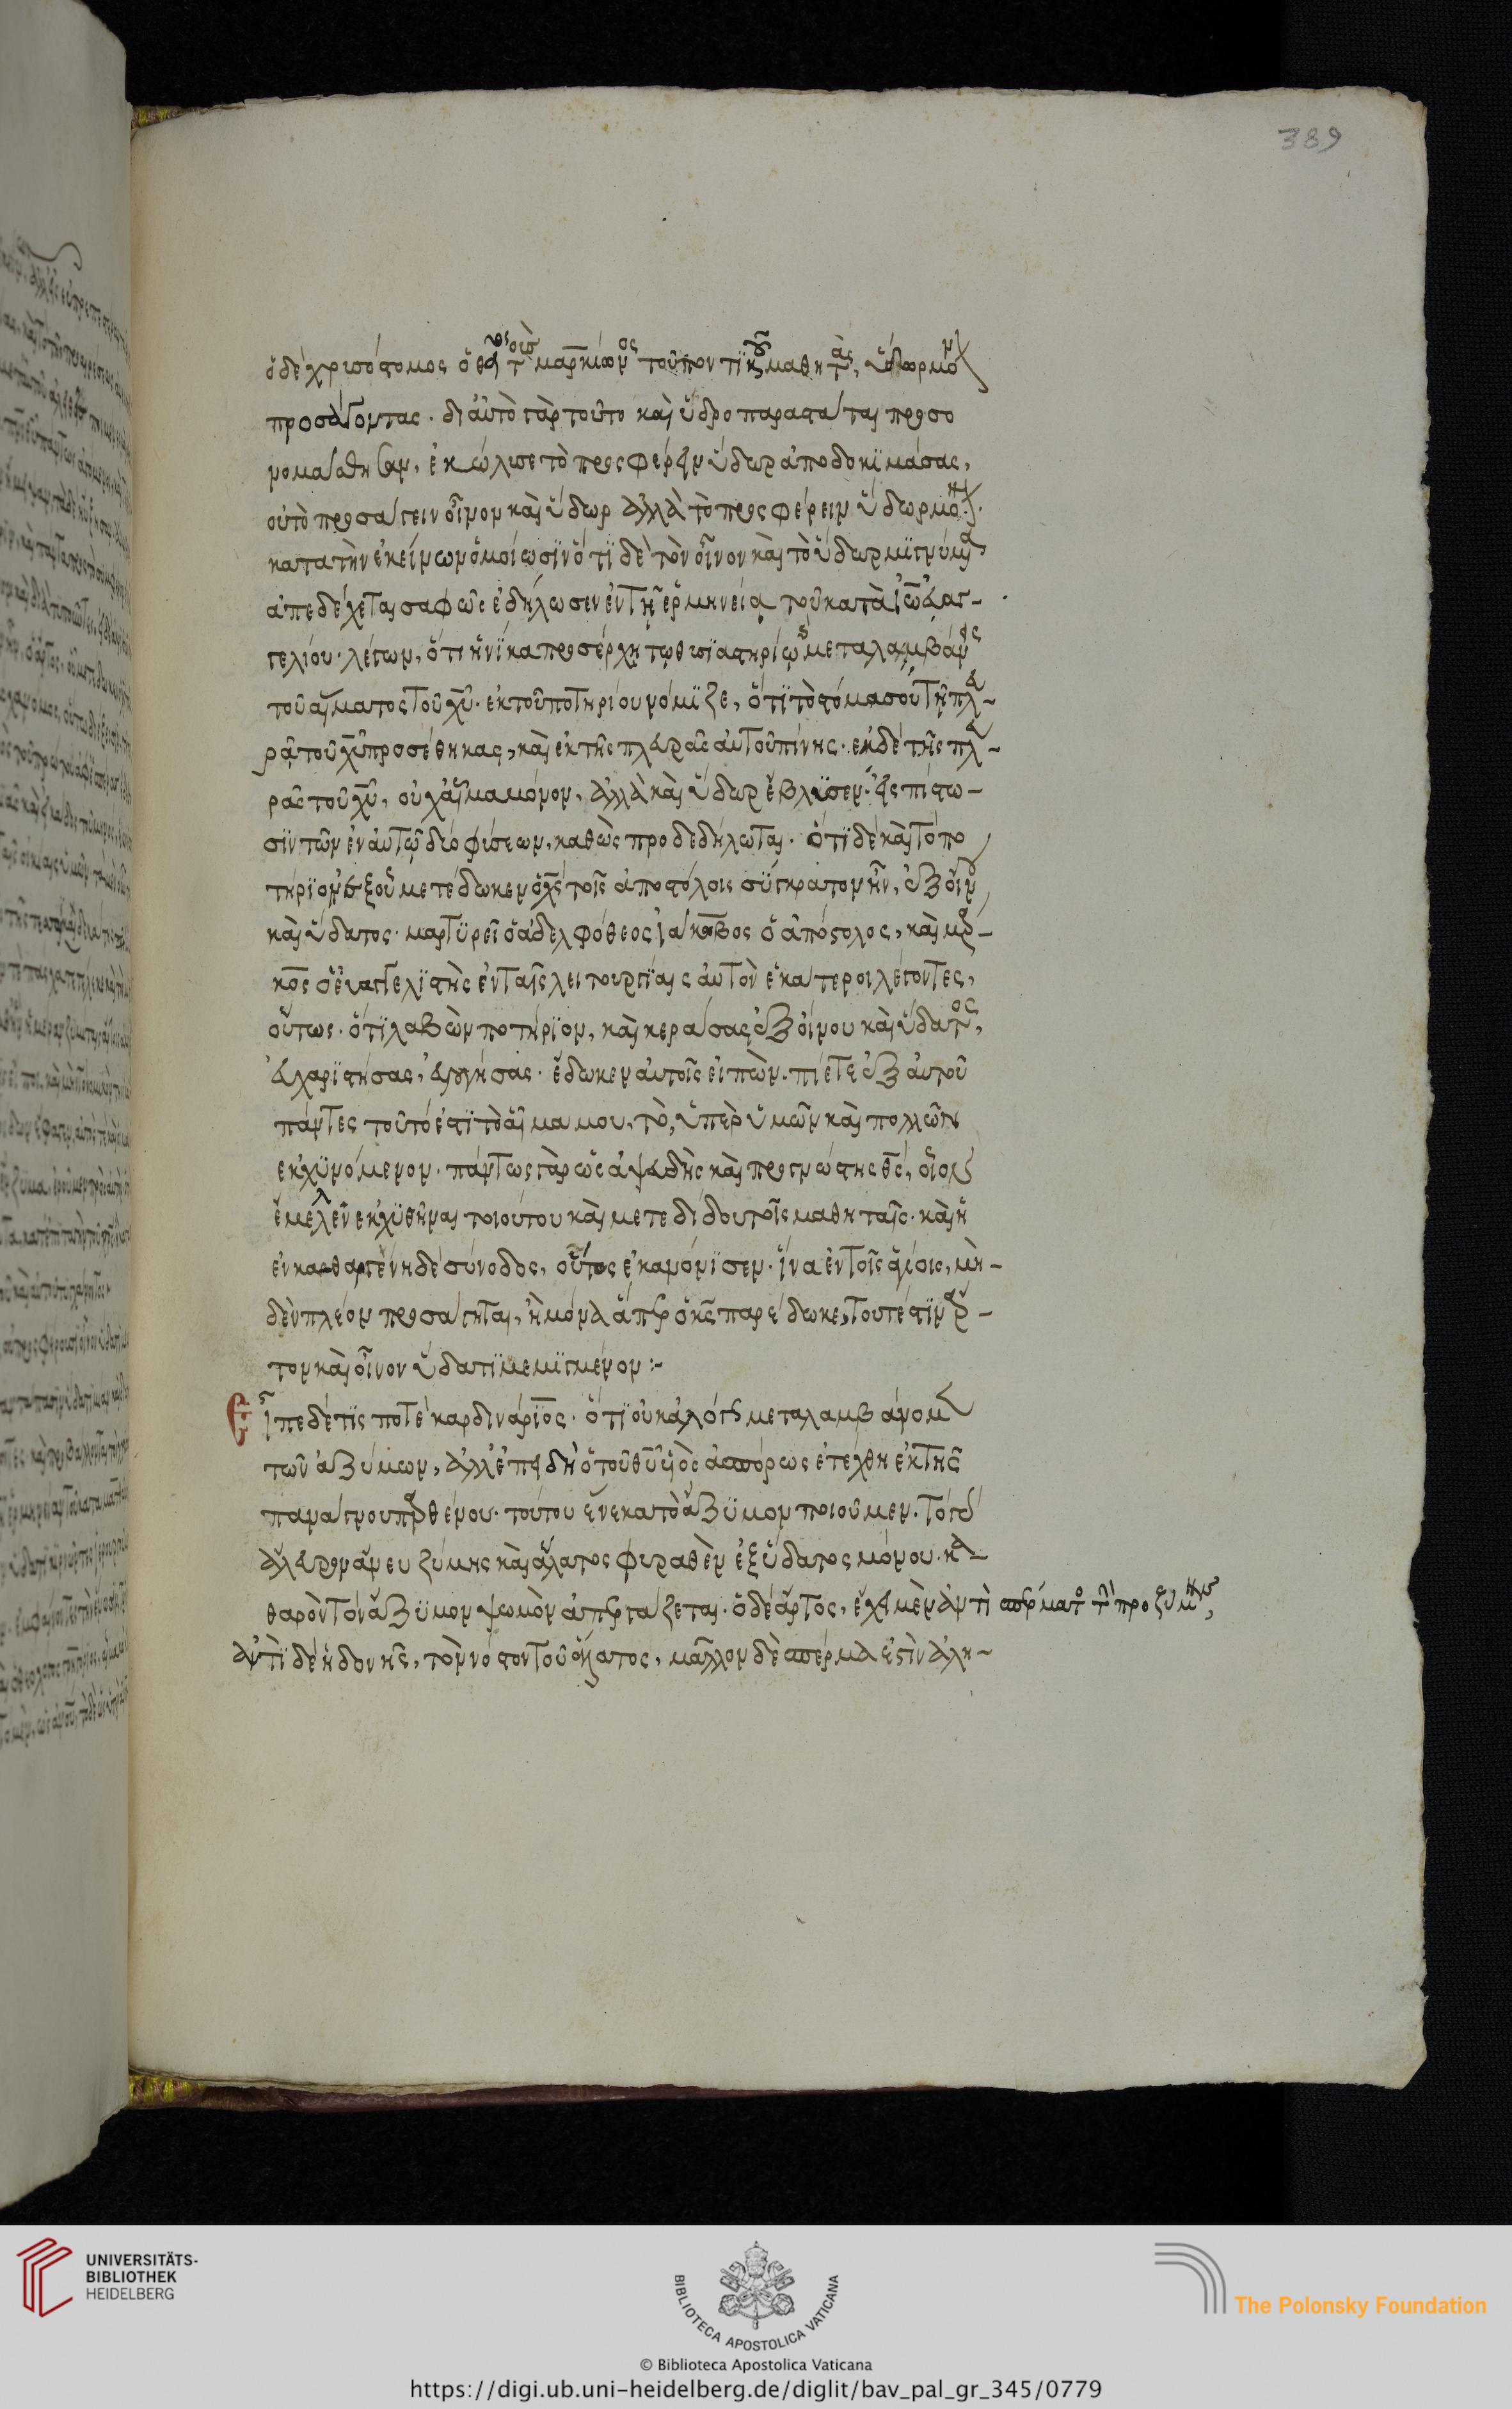 389
ὁ δὲ χρισόστομος ὁ θεῖος τοῖς μαρκίωνος τοῦ ποντικοῦ μαθητὰς, ὕδωρ μόνον
προσάγοντας. δι αὐτὸ γὰρ τοῦτο καὶ ὑδροπαραστάται προσο
νομάσθησαν, ἐκώλισε τὸ προσφέρειν ὕδωρ ἀποδοκϊμάσας,
οὐ τὸ προσάγειν οἶνον καὶ ὕδωρ ἀλλὰ τὸ προσφέρειν ὕδωρ μόνον.
κατα τὴν ἐκείνων ὁμοίωσϊν ὅτϊ δὲ τὸν οἶνον καὶ τὸ ὕδωρ μϊγνύμενα
ἀπεδέχεται σαφῶς ἐδήλωσεν ἐν τῇ ἑρμηνείᾳ τοῦ κατὰ ἰω εὐαγ-
γελίου. λέγων, ὅτι ἡνΐκα προσέρχη τῷ θυσϊαστηρίῳ μεταλαμβάνειν
τοῦ αἵματος τοῦ χυ. ἐκ τοῦ ποτηρίου νόμϊζε, ὅτϊ τὸ στόμα σου τῇ πλευ-
ρᾷ τοῦ χυ προσέθηκας, καὶ ἐκ τῆς πλευρᾶς αὐτοῦ πίνης. ἐκ δὲ τῆς πλευ-
ρᾶς τοῦ χυ, οὐχ αἷμα μόνον, ἀλλὰ καὶ ὕδωρ ἔβλϋσεν. εἰς πίστω-
σϊν τῶν ἐν αὐτῷ δύο φύσεων, καθὼς προδεδήλωται. ὅτϊ δὲ καὶ τὸ πο
τήρϊον ἐξ οὗ μετέδωκεν ὁ χς τοῖς ἀποστόλοις σύγκρατον ἦν, ἐξ οἴνου
καὶ ὕδατος. μαρτϋρεῖ ὁ ἀδελφόθεος ἰάκωβος ὁ ἀπόστολος, καὶ μάρ-
κος ὁ εὐαγγελϊστὴς ἐν ταῖς λειτουργΐαις αὐτῶν ἑκάτεροι λέγοντες,
οὕτως. ὅτϊ λαβὼν ποτήρϊον, καὶ κεράσας ἐξ οἴνου καὶ ὕδατος,
εὐχαρϊστήσας, εὐλογήσας. ἔδωκεν αὐτοῖς εἰπὼν. πίετε ἐξ αὐτοῦ
πάντες τοῦτό ἐστϊ τὸ αἷμα μου, τὸ, ὑπὲρ ὑμῶν καὶ πολλῶν
ἐκχϋνόμενον. πάντως γὰρ ὡς ἀψευδὴς καὶ προγνώστης θς, οἷον
ἔμελλεν ἐκχϋθῆναι τοιούτου καὶ μετεδίδου τοῖς μαθηταῖς. καὶ ἡ
ἐν καρθαγένη δὲ σύνοδος, οὕτως ἐκανόνϊσεν. ἵνα ἐν τοῖς ἁγίοις, μη-
δὲν πλέον προσάγηται, ἢ μόνα ἅπερ ὁ κς παρέδωκε, τουτέστϊν ἄρ-
τον καὶ οἶνον ὕδατϊ μεμϊγμένον:-
Εἶπε δέ τϊς ποτὲ καρδινάρϊος. ὅτϊ οὐκ ἀλόγως μεταλαμβάνομεν
τῶν ἀζύμων, ἀλλ ἐπειδὴ ὁ τοῦ θυ υἱὸς ἀσπόρως ἐτέχθη ἐκ τῆς
παναγνου παρθένου. τούτου ἕνεκα τὸ ἄζϋμον ποιοῦμεν. τὸ γὰρ
ἄλευρον ἄνευ ζύμης καὶ ἅλατος φυραθὲν ἐξ ὕδατος μόνου. κα-
θαρὸν τὸν ἄζϋμον ψωμὸν ἀπεργάζεται. ὁ δὲ ἄρτος, ἔχει μὲν ἀντὶ σπέρματος τὸ προζύμην,
ἀντϊ δὲ ἡδονῆς, τὸν νόστον τοῦ ἅλατος, μᾶλλον δὲ σπέρμα ἐστὶν ἀλη-
UNIVERSITÄTS-
BIBLIOTHEK
HEIDELBERG
BIBLIOTECA APOSTOLICA VATICANA
The Polonsky Foundation
© Biblioteca Apostolica Vaticana
https://digi.ub.uni-heidelberg.de/diglit/bav_pal_gr_345/0779